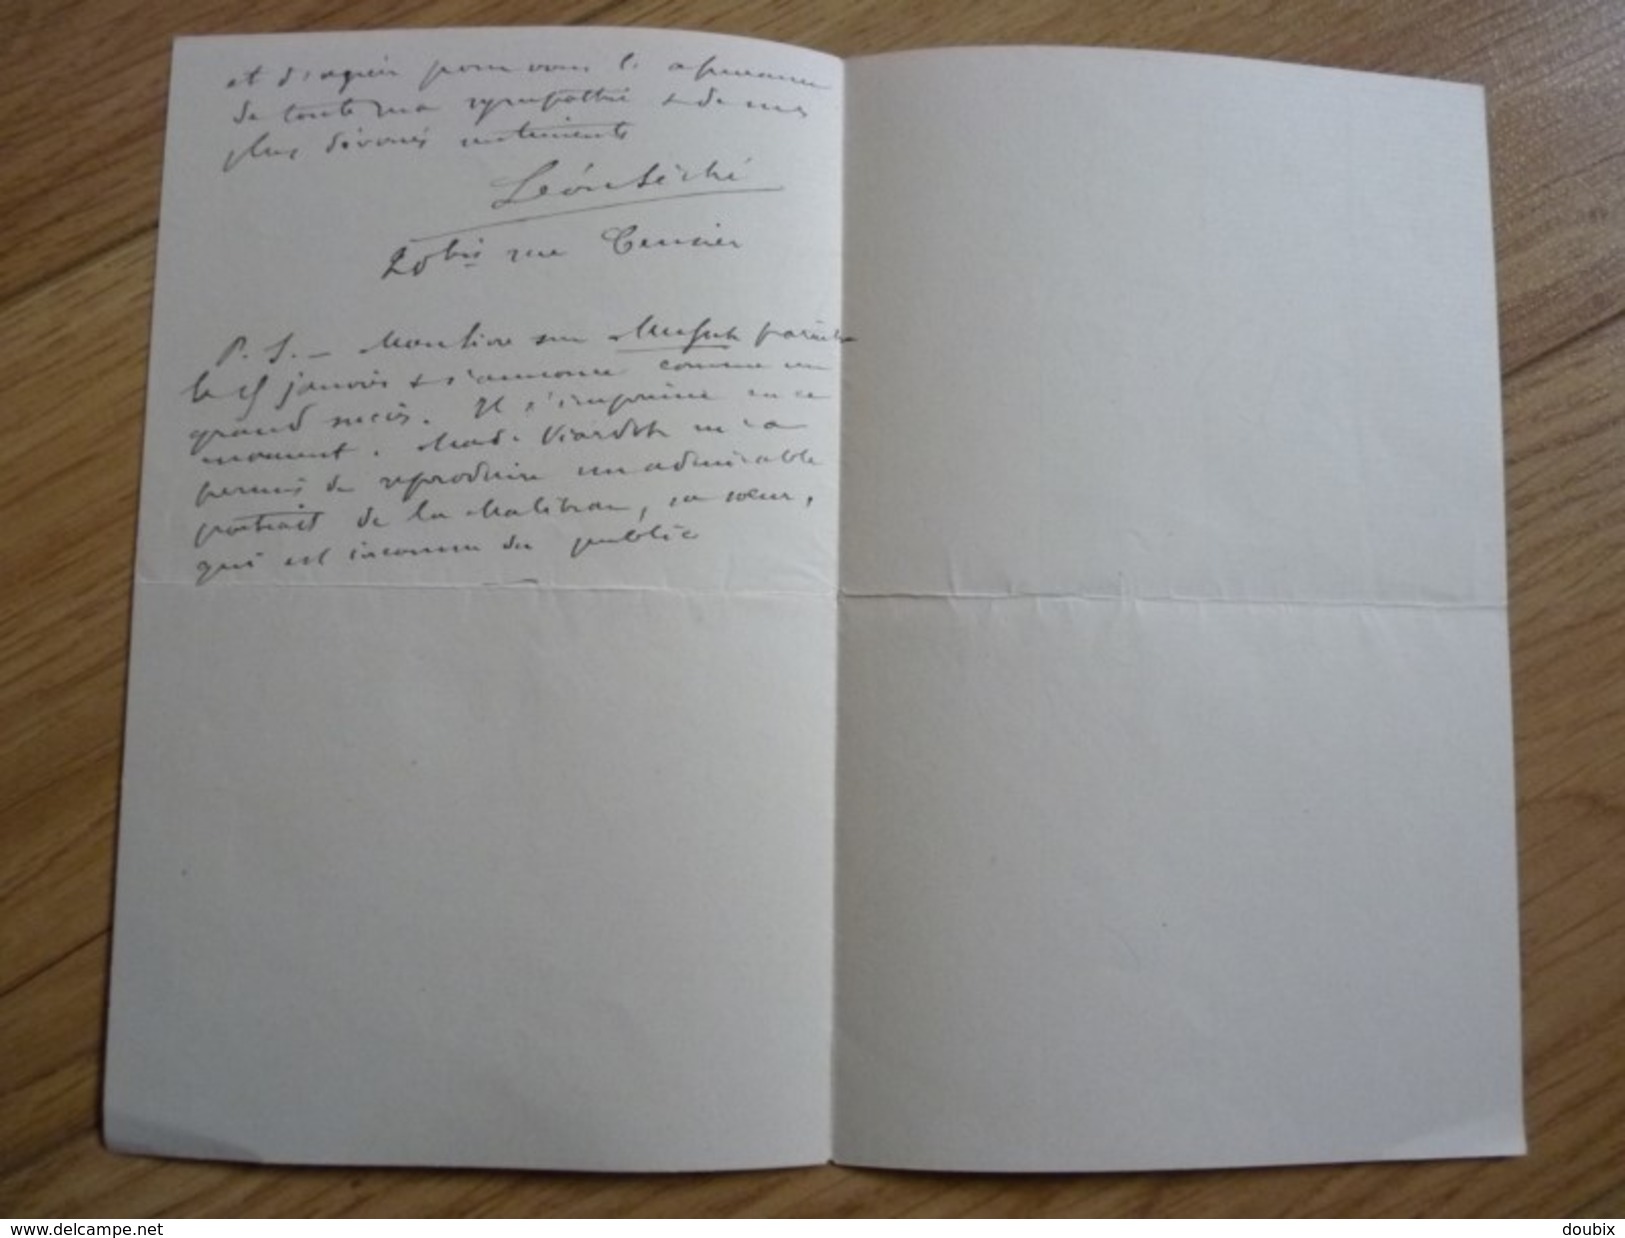 et d'agréer pour vous l'assurance
de toute ma sympathie & de mes
plus dévoués sentiments
Léon Séché
20 bis rue Censier
P. S. – Mon livre sur Musset paraîtra
le 15 janvier & s'annonce comme un
grand succès. Il s'imprime en ce
moment. Mad. Viardot m'a
permis de reproduire un admirable
portrait de la Malibran, sa sœur,
qui est inconnu du public
www.delcampe.net
doubix